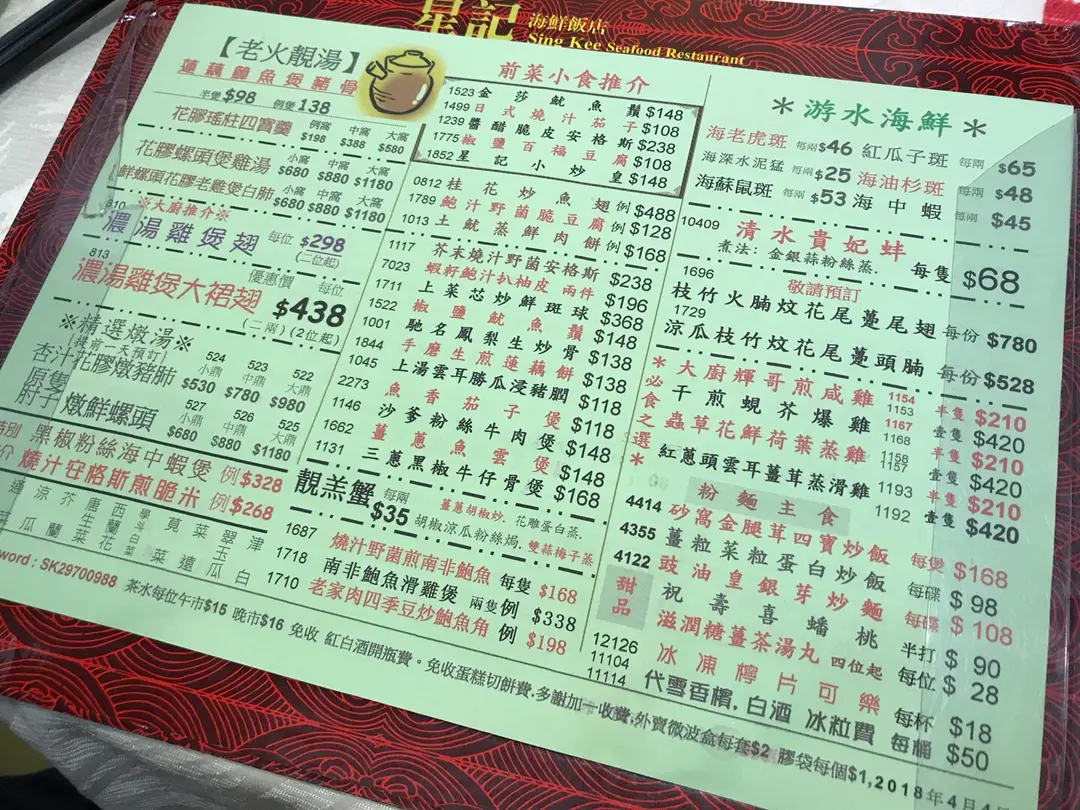 星記 海鮮飯店
Sing Kee Seafood Restaurant
【老火靚湯】
蓮藕鱆魚煲豬骨
半煲$98 例煲138
花膠瑤柱四寶羹 例窩$198 中窩$388 大窩$580
花膠螺頭煲雞湯 小窩$680 中窩$880 大窩$1180
鮮螺頭花膠老雞煲白肺 小窩$680 中窩$880 大窩$1180
810 ※大廚推介※
濃湯雞煲翅 每位$298
(二位起)
813 優惠價 每位
濃湯雞煲大裙翅 $438
(二兩)(2位起)
※精選燉湯※
(提前一天預訂)
杏汁花膠燉豬肺 524小鼎$530 523中鼎$780 522大鼎$980
原隻 燉鮮螺頭 527小鼎$680 526中鼎$880 525大鼎$1180
黑椒粉絲海中蝦煲 例$328
燒汁安格斯煎脆米 例$268
前菜小食推介
1523 金莎魷魚鬚 $148
1499 日式燒汁茄子 $108
1239 醬醋脆皮安格斯 $238
1775 椒鹽百福豆腐 $108
1852 星記小炒皇 $148
0812 桂花炒魚翅 例$488
1789 鮑汁野菌脆豆腐 例$128
1013 土魷蒸鮮肉餅 例$168
1117 芥末燒汁野菌安格斯 $238
7023 蝦籽鮑汁扒柚皮 兩件 $196
1711 上菜芯炒鮮斑球 $368
1522 椒鹽魷魚鬚 $148
1001 馳名鳳梨生炒骨 $138
1844 手磨生煎蓮藕餅 $138
1045 上湯雲耳勝瓜浸豬膶 $118
2273 魚香茄子煲 $118
1146 沙爹粉絲牛肉煲 $148
1662 薑蔥魚雲煲 $148
1131 三蔥黑椒牛仔骨煲 $168
靚羔蟹 每兩$35 薑蔥胡椒炒. 花雕蛋白蒸.
胡椒涼瓜粉絲焗. 雙蒜梅子蒸
1687 燒汁野菌煎南非鮑魚 每隻$168
1718 南非鮑魚滑雞煲 兩隻例$338
1710 老家肉四季豆炒鮑魚角 例$198
*游水海鮮*
海老虎斑 每兩$46 紅瓜子斑 每兩$65
海深水泥猛 每兩$25 海油杉斑 每兩$48
海蘇鼠斑 每兩$53 海中蝦 每兩$45
10409 清水貴妃蚌 每隻$68
煮法:金銀蒜粉絲蒸.
1696 敬請預訂
枝竹火腩炆花尾躉尾翅 每份$780
1729
涼瓜枝竹炆花尾躉頭腩 每份$528
*必食之選*
大廚輝哥煎咸雞 1154 半隻$210
1153 壹隻$420
干煎蜆芥爆雞 1167 半隻$210
1168 壹隻$420
蟲草花鮮荷葉蒸雞 1158
1157
紅蔥頭雲耳薑茸蒸滑雞 1193 半隻$210
1192 壹隻$420
粉麵主食
4414 砂窩金腿茸四寶炒飯 每煲$168
4355 薑粒菜粒蛋白炒飯 每碟$98
4122 豉油皇銀芽炒麵 每碟$108
甜品
祝壽喜蟠桃 半打$90
12126 滋潤糖薑茶湯丸 四位起 每位$28
11104 冰凍檸片可樂 每杯$18
11114 代雪香檳.白酒 冰粒費 每桶$50
word : SK29700988
茶水每位午市$15 晚市$16 免收 紅白酒開瓶費。免收蛋糕切餅費.多謝加一收費.外賣微波盒每套$2 膠袋每個$1,2018年4月